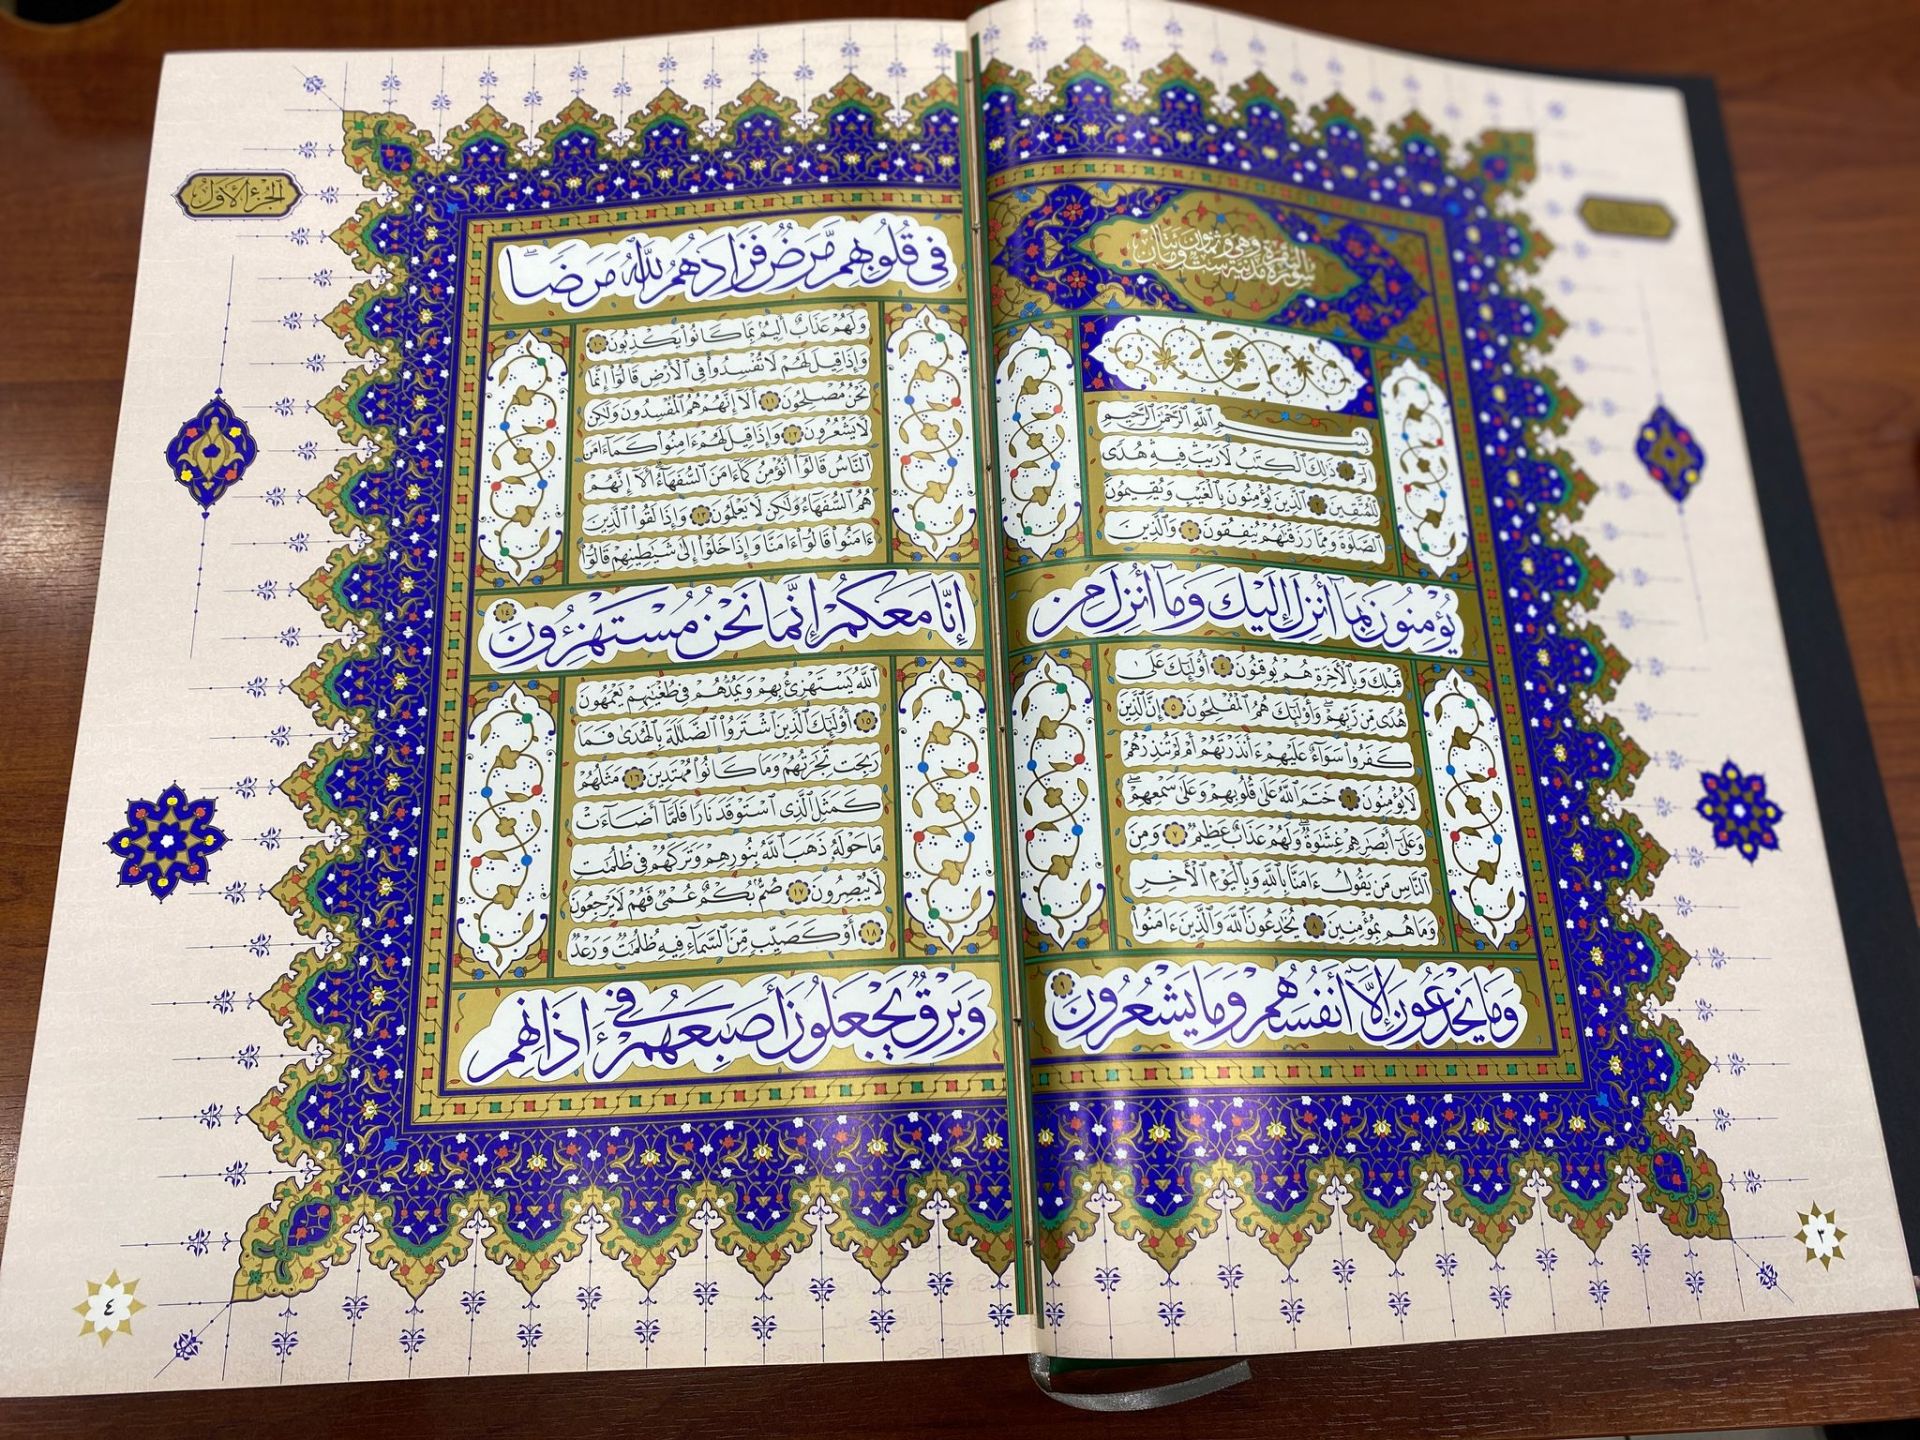 سورة البقرة وهي مائتان وست وثمانون آية مدنية
بِسْمِ ٱللَّهِ ٱلرَّحْمَٰنِ ٱلرَّحِيمِ
الٓمٓ ١ ذَٰلِكَ ٱلْكِتَٰبُ لَا رَيْبَ فِيهِ هُدًى
لِّلْمُتَّقِينَ ٢ ٱلَّذِينَ يُؤْمِنُونَ بِٱلْغَيْبِ وَيُقِيمُونَ
ٱلصَّلَوٰةَ وَمِمَّا رَزَقْنَٰهُمْ يُنفِقُونَ ٣ وَٱلَّذِينَ
يُؤْمِنُونَ بِمَآ أُنزِلَ إِلَيْكَ وَمَآ أُنزِلَ مِن
قَبْلِكَ وَبِٱلْأَخِرَةِ هُمْ يُوقِنُونَ ٤ أُو۟لَٰٓئِكَ عَلَىٰ
هُدًى مِّن رَّبِّهِمْ وَأُو۟لَٰٓئِكَ هُمُ ٱلْمُفْلِحُونَ ٥ إِنَّ ٱلَّذِينَ
كَفَرُوا۟ سَوَآءٌ عَلَيْهِمْ ءَأَنذَرْتَهُمْ أَمْ لَمْ تُنذِرْهُمْ
لَا يُؤْمِنُونَ ٦ خَتَمَ ٱللَّهُ عَلَىٰ قُلُوبِهِمْ وَعَلَىٰ سَمْعِهِمْ
وَعَلَىٰٓ أَبْصَٰرِهِمْ غِشَٰوَةٌ وَلَهُمْ عَذَابٌ عَظِيمٌ ٧ وَمِنَ
ٱلنَّاسِ مَن يَقُولُ ءَامَنَّا بِٱللَّهِ وَبِٱلْيَوْمِ ٱلْأَخِرِ
وَمَا هُم بِمُؤْمِنِينَ ٨ يُخَٰدِعُونَ ٱللَّهَ وَٱلَّذِينَ ءَامَنُوا۟
وَمَا يَخْدَعُونَ إِلَّآ أَنفُسَهُمْ وَمَا يَشْعُرُونَ ٩
٣
ٱلجزء ٱلأول
فِى قُلُوبِهِم مَّرَضٌ فَزَادَهُمُ ٱللَّهُ مَرَضًا
وَلَهُمْ عَذَابٌ أَلِيمٌۢ بِمَا كَانُوا۟ يَكْذِبُونَ ١٠
وَإِذَا قِيلَ لَهُمْ لَا تُفْسِدُوا۟ فِى ٱلْأَرْضِ قَالُوٓا۟ إِنَّمَا
نَحْنُ مُصْلِحُونَ ١١ أَلَآ إِنَّهُمْ هُمُ ٱلْمُفْسِدُونَ وَلَٰكِن
لَّا يَشْعُرُونَ ١٢ وَإِذَا قِيلَ لَهُمْ ءَامِنُوا۟ كَمَآ ءَامَنَ
ٱلنَّاسُ قَالُوٓا۟ أَنُؤْمِنُ كَمَآ ءَامَنَ ٱلسُّفَهَآءُ أَلَآ إِنَّهُمْ
هُمُ ٱلسُّفَهَآءُ وَلَٰكِن لَّا يَعْلَمُونَ ١٣ وَإِذَا لَقُوا۟ ٱلَّذِينَ
ءَامَنُوا۟ قَالُوٓا۟ ءَامَنَّا وَإِذَا خَلَوْا۟ إِلَىٰ شَيَٰطِينِهِمْ قَالُوٓا۟
إِنَّا مَعَكُمْ إِنَّمَا نَحْنُ مُسْتَهْزِءُونَ ١٤
ٱللَّهُ يَسْتَهْزِئُ بِهِمْ وَيَمُدُّهُمْ فِى طُغْيَٰنِهِمْ يَعْمَهُونَ
١٥ أُو۟لَٰٓئِكَ ٱلَّذِينَ ٱشْتَرَوُا۟ ٱلضَّلَٰلَةَ بِٱلْهُدَىٰ فَمَا
رَبِحَت تِّجَٰرَتُهُمْ وَمَا كَانُوا۟ مُهْتَدِينَ ١٦ مَثَلُهُمْ
كَمَثَلِ ٱلَّذِى ٱسْتَوْقَدَ نَارًا فَلَمَّآ أَضَآءَتْ
مَا حَوْلَهُۥ ذَهَبَ ٱللَّهُ بِنُورِهِمْ وَتَرَكَهُمْ فِى ظُلُمَٰتٍ
لَّا يُبْصِرُونَ ١٧ صُمٌّۢ بُكْمٌ عُمْىٌ فَهُمْ لَا يَرْجِعُونَ
١٨ أَوْ كَصَيِّبٍ مِّنَ ٱلسَّمَآءِ فِيهِ ظُلُمَٰتٌ وَرَعْدٌ
وَبَرْقٌ يَجْعَلُونَ أَصَٰبِعَهُمْ فِىٓ ءَاذَانِهِم
٤